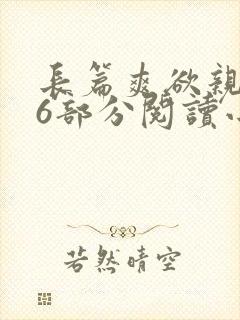 長篇爽欲親
6部分閱讀
若然晴空